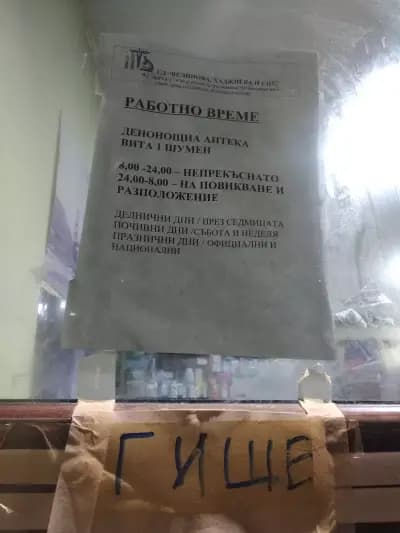 РАБОТНО ВРЕМЕ
ДЕНОНОЩНА АПТЕКА
ВИТА 1 ШУМЕН
8,00 -24,00 – НЕПРЕКЪСНАТО
24,00-8,00 – НА ПОВИКВАНЕ И
РАЗПОЛОЖЕНИЕ
ДЕЛНИЧНИ ДНИ / ПРЕЗ СЕДМИЦАТА
ПОЧИВНИ ДНИ /СЪБОТА И НЕДЕЛЯ
ПРАЗНИЧНИ ДНИ / ОФИЦИАЛНИ И
НАЦИОНАЛНИ
ГИШЕ